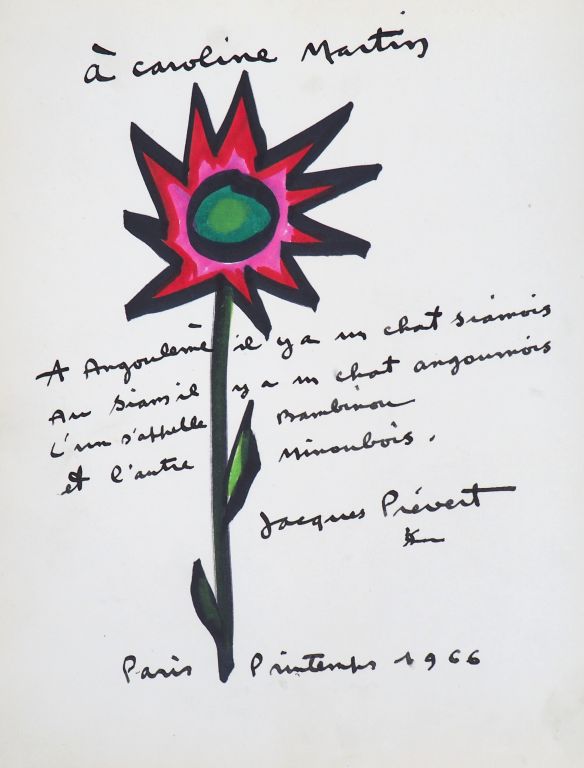 à Caroline Martin
A Angoulème il y a un chat siamois
Au Siam il y a un chat angoumois
L'un s'appelle Bambinou
et l'autre Minoubois.
Jacques Prévert
Paris Printemps 1966